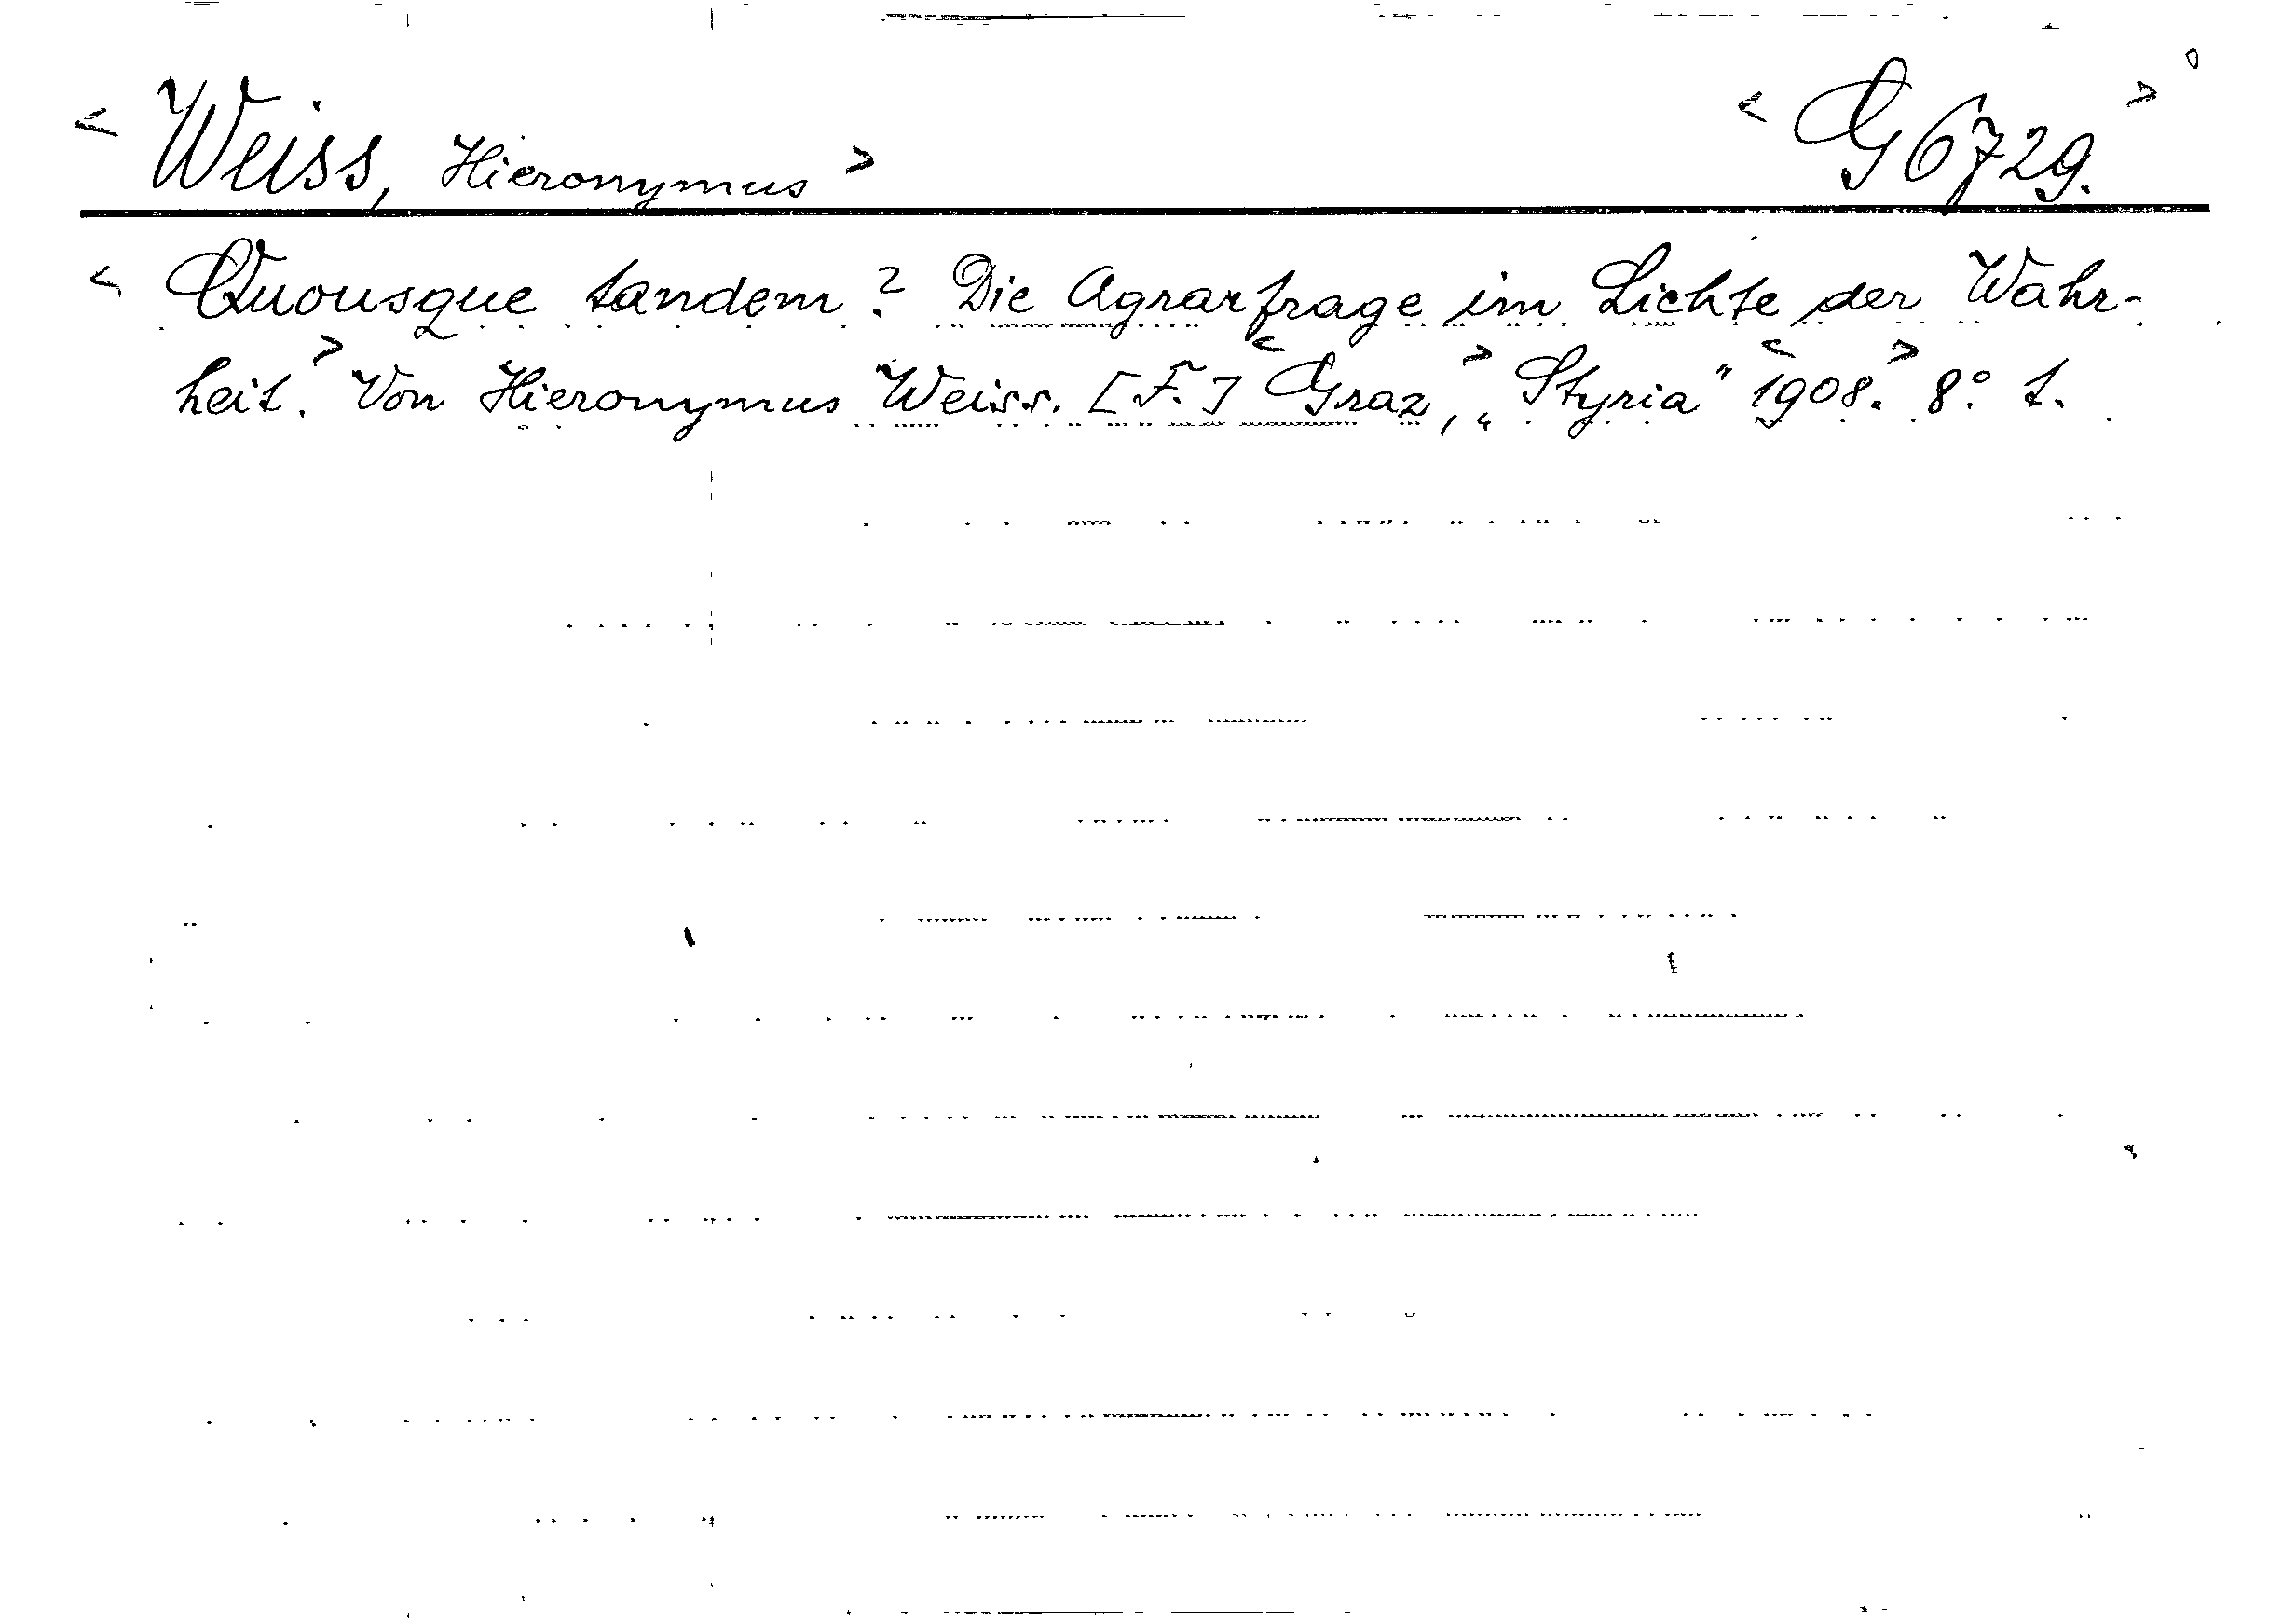 < Weiss, Hieronymus > < G 6729. >
< Quousque tandem? Die Agrarfrage im Lichte der Wahr-
heit. > Von Hieronymus Weiss. [F.] < Graz, > „Styria" < 1908. > 8° 1.